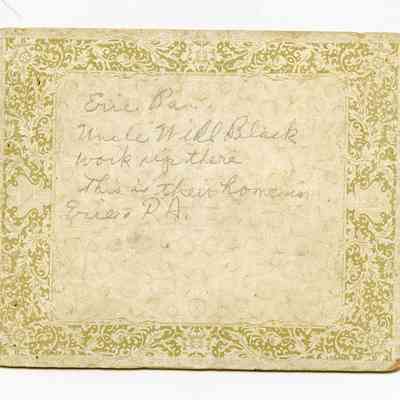 Erie Pa.
Uncle Will Black
work up there
This is their home in
Erie P A.